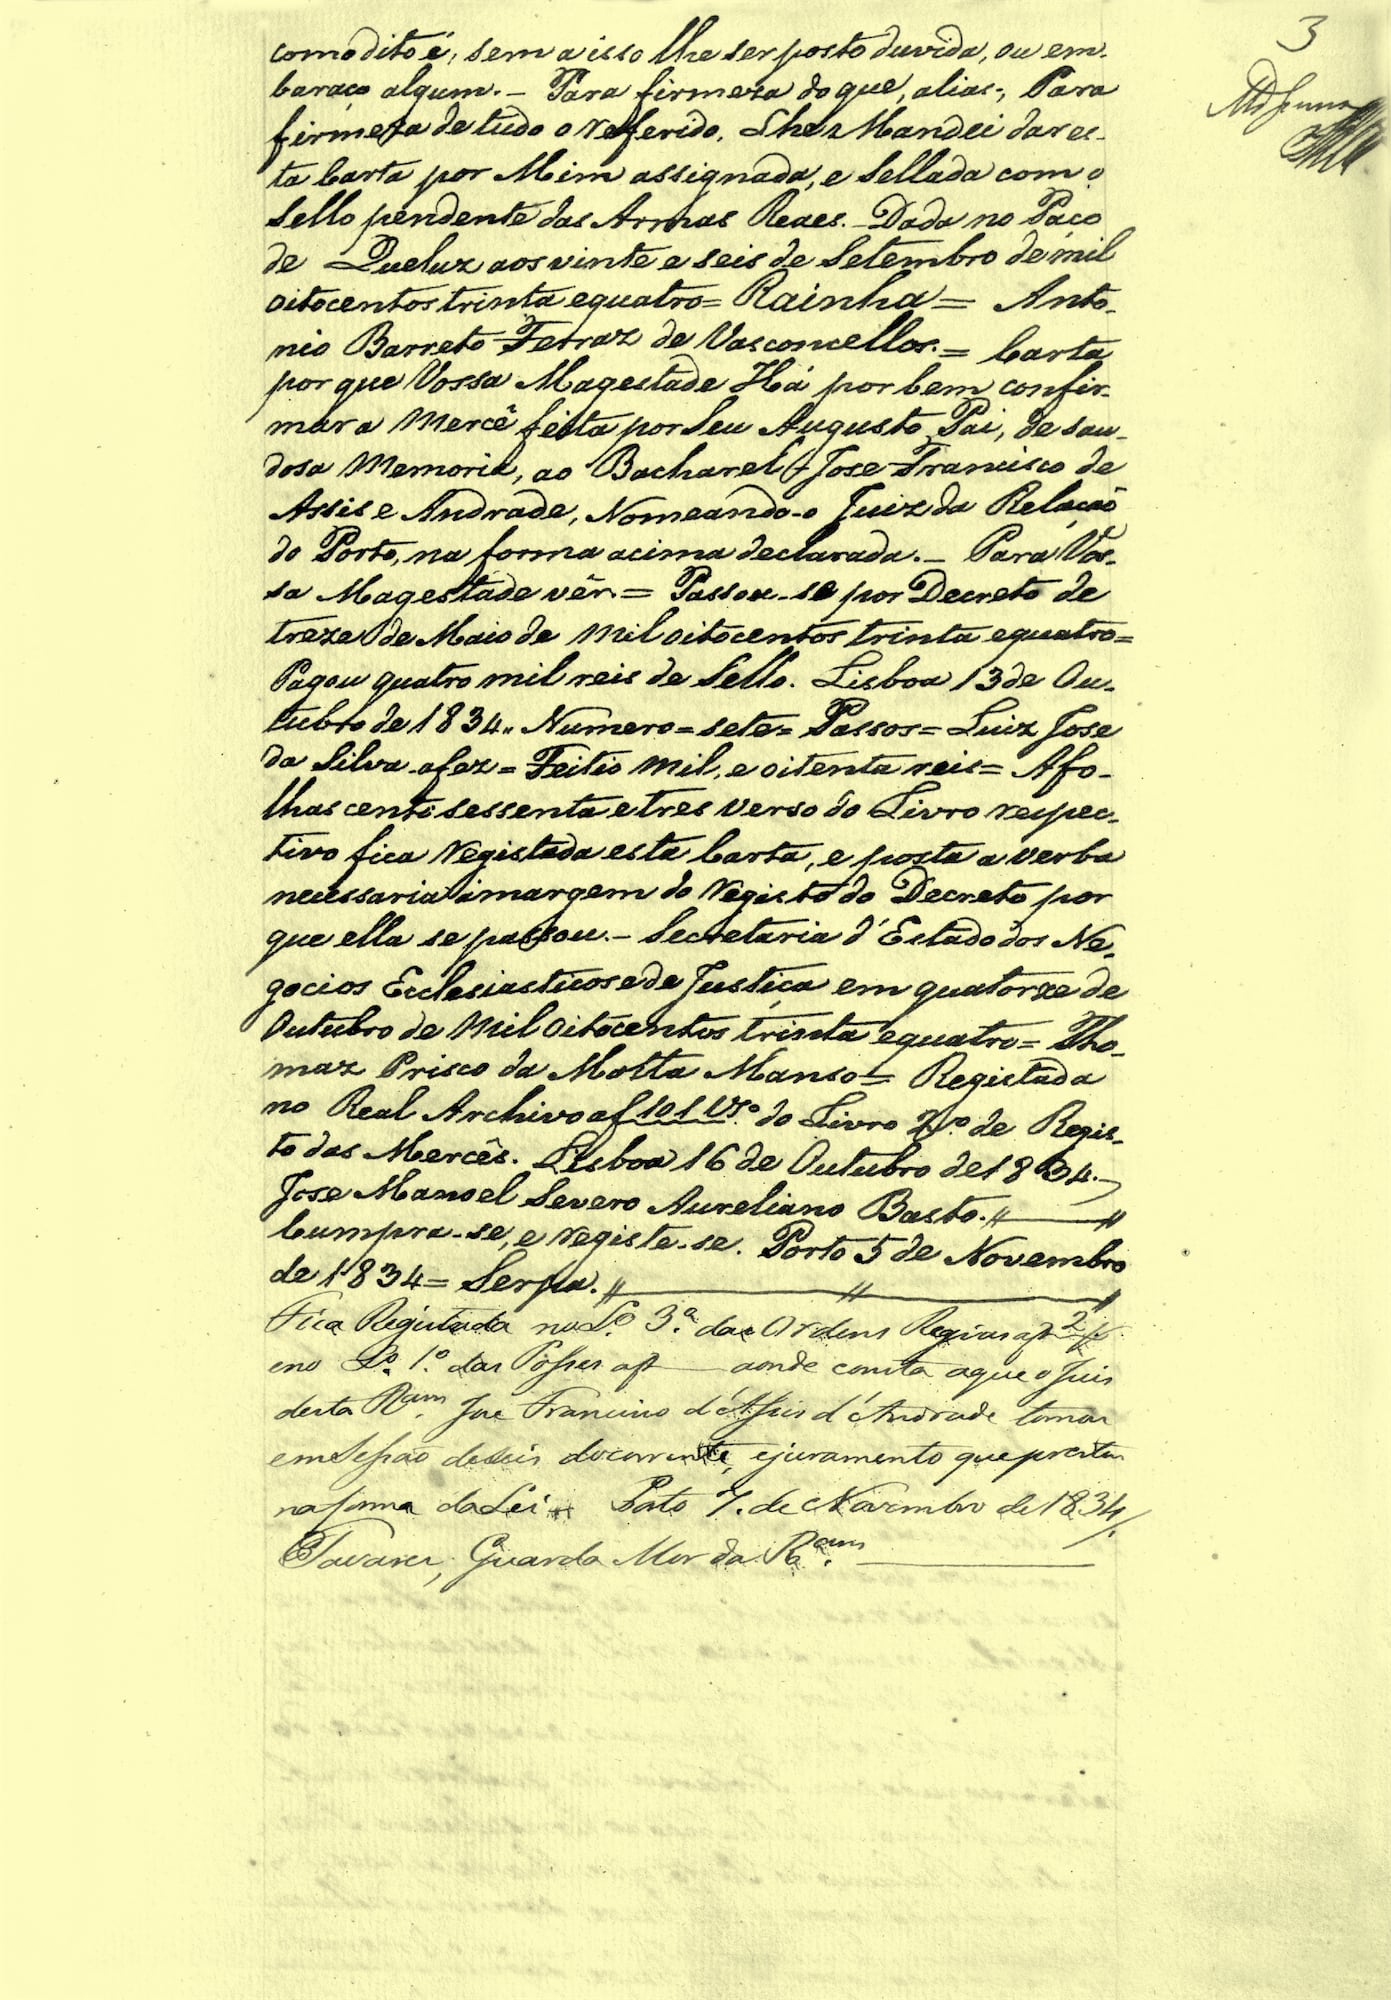 3
como dito é, sem a isso lhe ser posto duvida, ou em-
baraço algum. — Para firmeza do que, alias, Para
firmeza de tudo o referido, Lhes Mandei dar es-
ta Carta por Mim assignada, e Sellada com o
Sello pendente das Armas Reaes. — Dada no Paço
de Queluz aos vinte e seis de Setembro de mil
oitocentos trinta e quatro = Rainha = Anto-
nio Barreto Ferraz de Vasconcellos. = Carta
por que Vossa Magestade Há por bem confir-
mar a Mercê feita por Seu Augusto Pai, de sau-
dosa Memoria, ao Bacharel Jose Francisco de
Assis e Andrade, Nomeando-o Juiz da Relação
do Porto, na forma acima declarada. — Para Vos-
sa Magestade vêr. = Passou-se por Decreto de
treze de Maio de mil oitocentos trinta e quatro =
Pagou quatro mil reis de Sello. Lisboa 13 de Ou-
tubro de 1834. Numero = sete = Passos = Luiz Jose
da Silva a fez = Feitio mil, e oitenta reis = A fo-
lhas cento sessenta e tres verso do Livro respec-
tivo fica Registada esta Carta, e posta a verba
necessaria á margem do Registo do Decreto por
que ella se passou. — Secretaria d'Estado dos Ne-
gocios Ecclesiasticos e de Justiça em quatorze de
Outubro de Mil Oitocentos trinta e quatro = Tho-
maz Prisco da Motta Manso = Registada
no Real Archivo a f 101 Vº. do Livro 2º. de Regis-
to das Mercês. Lisboa 16 de Outubro de 1834. —
Jose Manoel Severo Aureliano Basto. //——//
Cumpra-se, e registe-se. Porto 5 de Novembro
de 1834 = Serpa. //——//——//
Fica Registada no Lº 3º. das Ordens Regias a f 2
e no Lº. 1º. das Posses a f — aonde consta a que o Juis
desta Ram. Jose Francisco d'Assis d'Andrade tomou
em Sessão de seis do corrente, e juramento que prestou
na forma da Lei. Porto 7. de Novembro de 1834/.
Tavares, Guarda Mor da Ram. ——